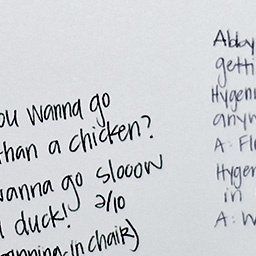 ou wanna go
than a chicken?
wanna go slooow
duck! 2/10
in chair)
Abby
getti
Hygen
anyw
A: Fl
Hygen
in
A: W